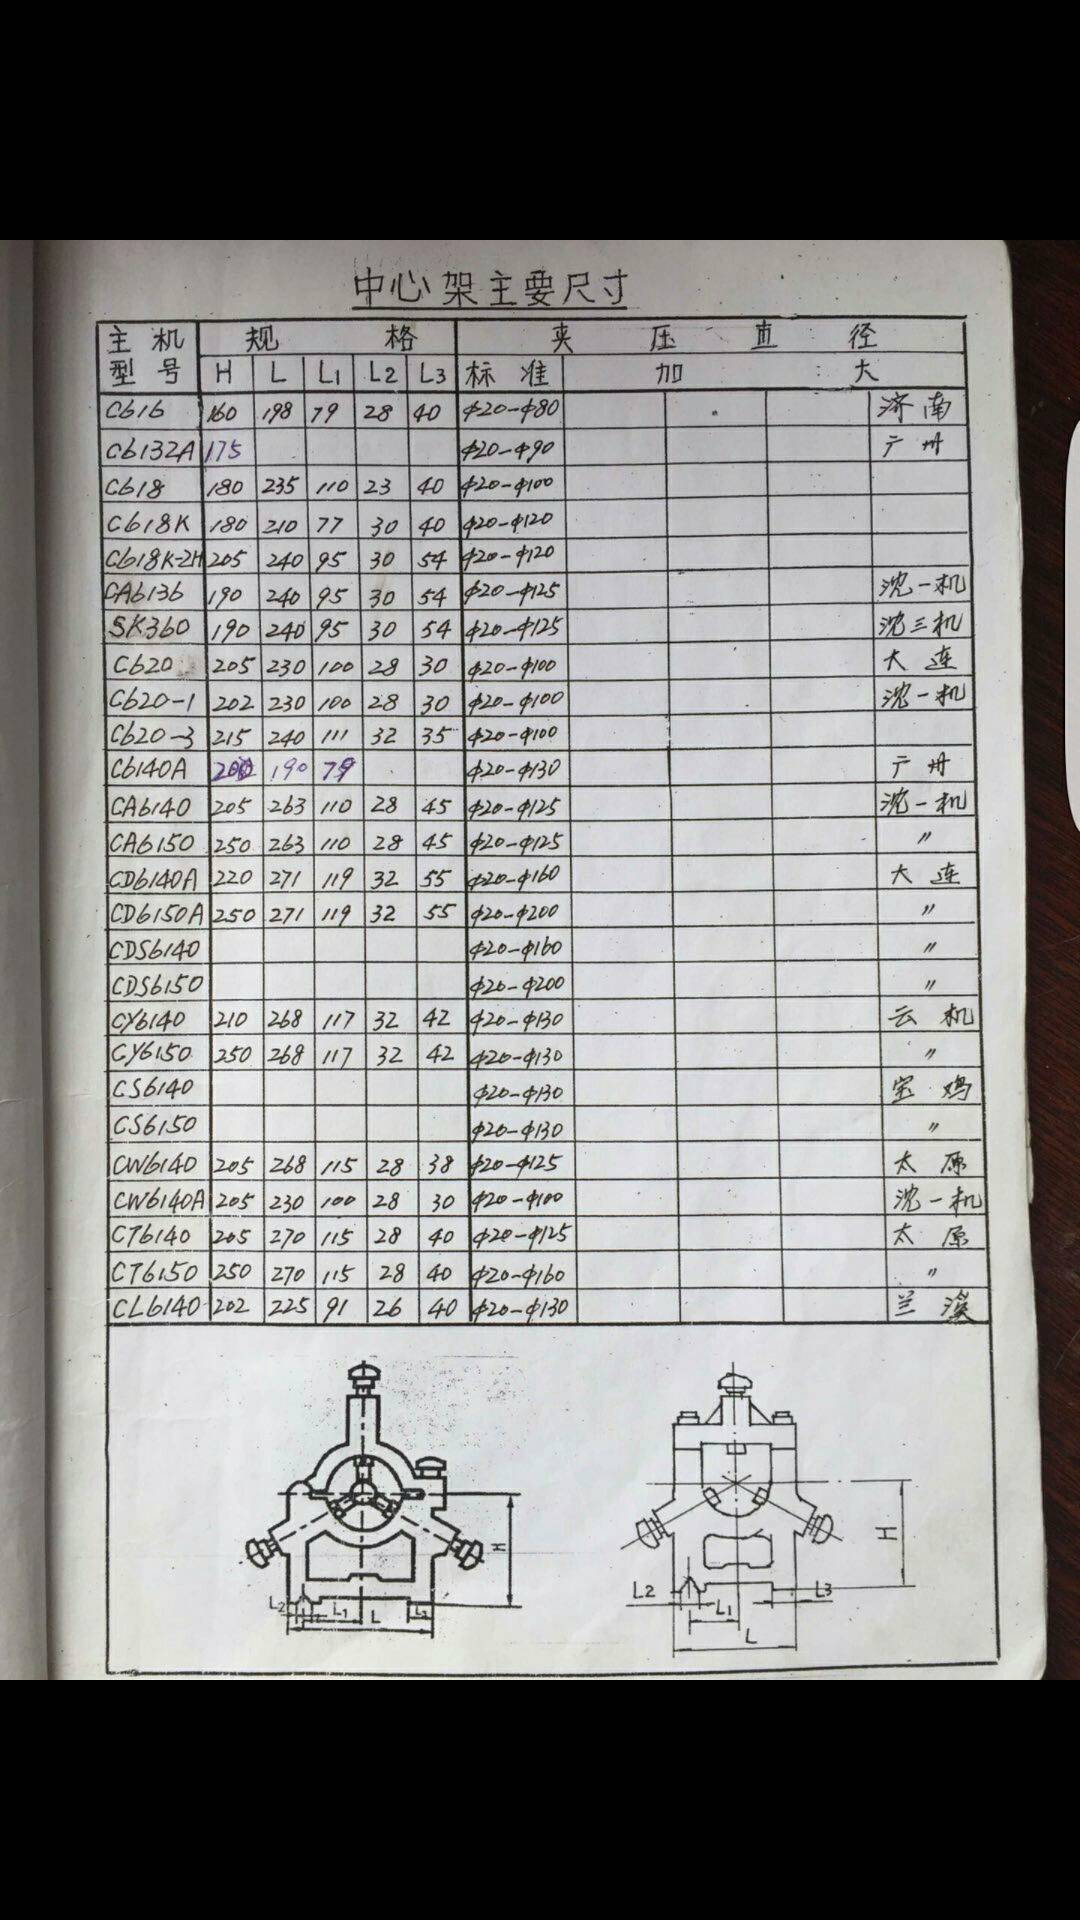 中心架主要尺寸
主机型号 规格 夹压直径
H L L1 L2 L3 标准 加大
C616 160 198 79 28 40 φ20-φ80 济南
C6132A 175 φ20-φ90 广州
C618 180 235 110 23 40 φ20-φ100
C618K 180 210 77 30 40 φ20-φ120
C618K-2H 205 240 95 30 54 φ20-φ120
CA6136 190 240 95 30 54 φ20-φ125 沈一机
SK360 190 240 95 30 54 φ20-φ125 沈三机
C620 205 230 100 28 30 φ20-φ100 大连
C620-1 202 230 100 28 30 φ20-φ100 沈一机
C620-3 215 240 111 32 35 φ20-φ100
C6140A 190 79 φ20-φ130 广州
CA6140 205 263 110 28 45 φ20-φ125 沈一机
CA6150 250 263 110 28 45 φ20-φ125 〃
CD6140A 220 271 119 32 55 φ20-φ160 大连
CD6150A 250 271 119 32 55 φ20-φ200 〃
CDS6140 φ20-φ160 〃
CDS6150 φ20-φ200 〃
CY6140 210 268 117 32 42 φ20-φ130 云机
CY6150 250 268 117 32 42 φ20-φ130 〃
CS6140 φ20-φ130 宝鸡
CS6150 φ20-φ130 〃
CW6140 205 268 115 28 38 φ20-φ125 太原
CW6140A 205 230 100 28 30 φ20-φ100 沈一机
CT6140 205 270 115 28 40 φ20-φ125 太原
CT6150 250 270 115 28 40 φ20-φ160 〃
CL6140 202 225 91 26 40 φ20-φ130 兰溪
H H
L2 L1 L L3
L2 L1 L3
L